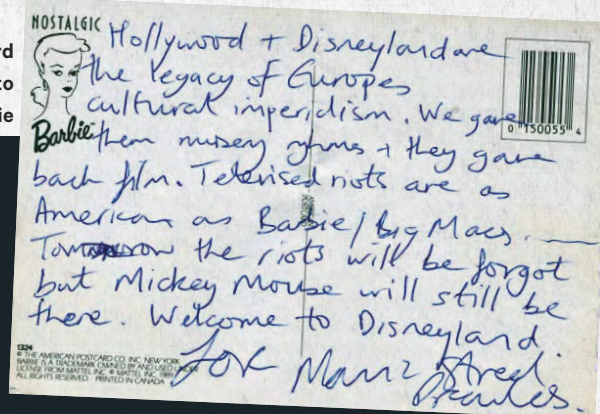 rd
to
ie
NOSTALGIC
Barbie
Hollywood + Disneyland are
the legacy of Europes
cultural imperialism. We gave
them nursery rhymes + they gave
back film. Televised riots are as
American as Barbie / Big Macs. —
Tomorrow the riots will be forgot
but Mickey Mouse will still be
there. Welcome to Disneyland.
Love Manic Street
Preachers.
0 150055 4
1324
© THE AMERICAN POSTCARD CO. INC. NEW YORK
BARBIE IS A TRADEMARK OWNED BY AND USED UNDER
LICENSE FROM MATTEL INC. © MATTEL INC. 1989
ALL RIGHTS RESERVED PRINTED IN CANADA